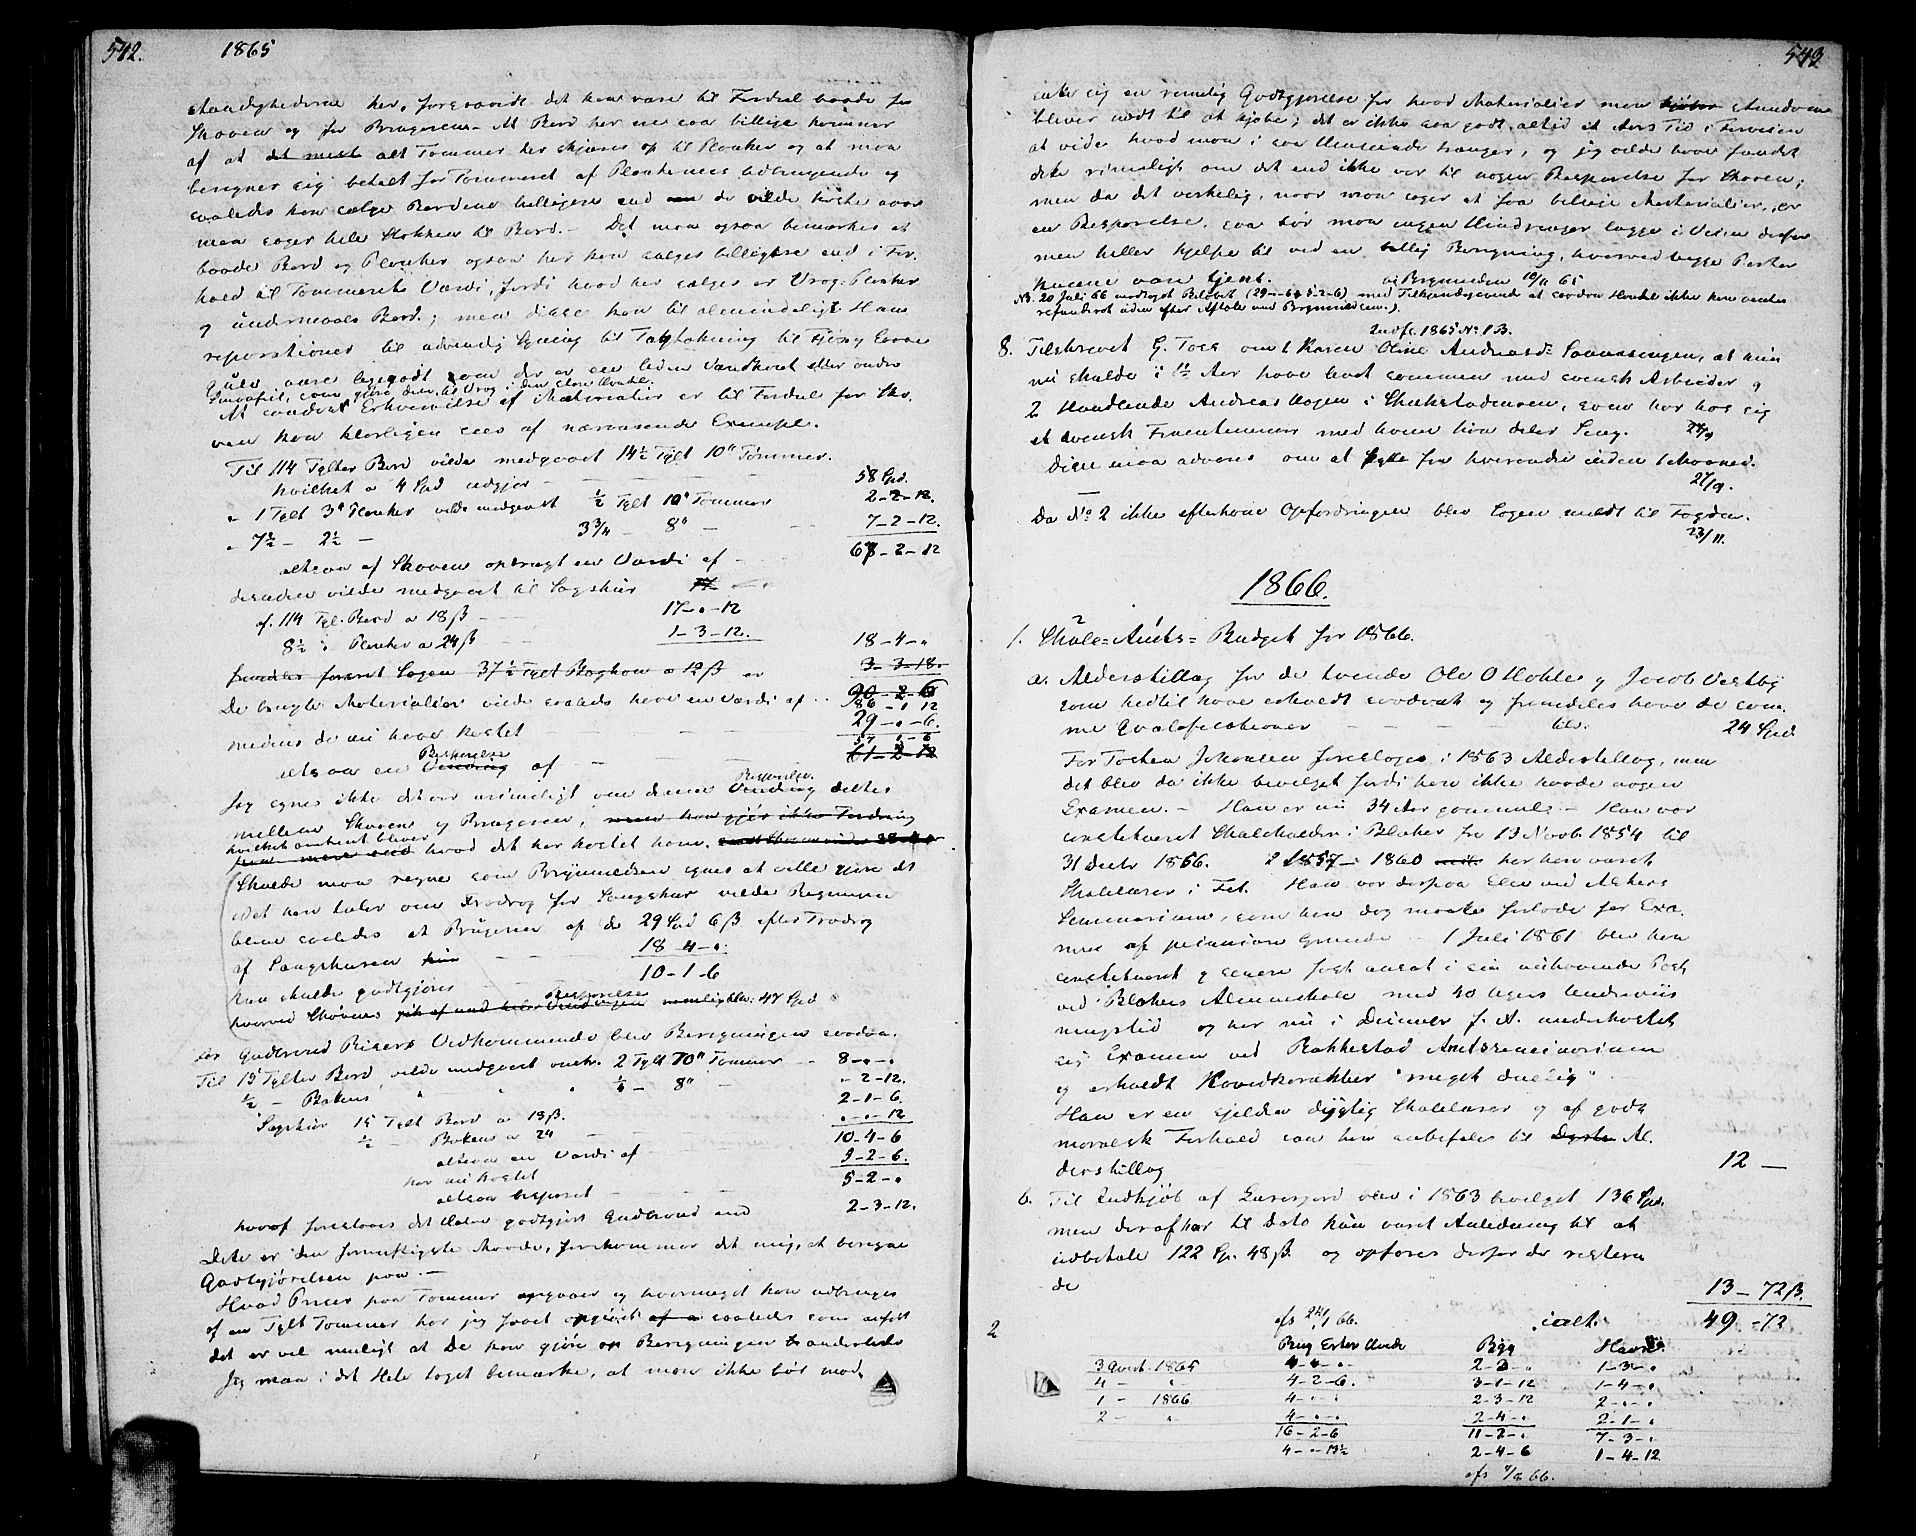 542. 1865
stændighederne her, forsaavidt det kan være til Fordeel baade for
Skoven og for Brugeren. At Bord her ere saa billige kommer
af at det mest alt Tømmer her skjæres op til Planker og at man
beregner sig betalt for Tømmeret af Plankernes Udbringende og
saaledes kan sælge Bordene billigere end de vilde koste naar
man sager hele Stokken til Bord. Det maa ogsaa bemærkes at
baade Bord og Planker ogsaa her kan sælges billigere end i For-
hold til Tømmerets Værdi, fordi hvad her sælges er Vrag-Planker
og undermaals Bord; men disse kan til almindelige Huus
reparationer til udvendig Klædning til Tagtækning til
Gulv være ligegodt om der er en liden Vandkant eller anden
At saadan Erhvervelse af Materialier er til Fordeel for Sko-
ven kan klarligen sees af nærværende Exempel.
Til 114 Tylter Bord vilde medgaaet 14½ Tylt 10" Tømmer.
hvilket a 4 Spd udgjør 58 Spd.
" 1 Tylt 3" Planker vilde medgaaet ½ Tylt 10" Tømmer 2-2-12.
" 7½ - 2½ - 3¾ - 8" - 7-2-12.
altsaa af Skoven opbragt en Værdi af 67-2-12
desuden vilde medgaaet til Sagskur
af 114 Tyl. Bord a 18 β 17-"-12
8½ " Planker a 24 β 1-3-12. 18-4-"
fremdeles sparet Sagen 37½ Tylt Baghon a 12 β er 3-3-18.
De brugte Materialier vilde saaledes have en Værdi af 90-2-6
86-1-12
medens de nu have kostet 29-"-6.
57-1-6
altsaa en Besparelse af 61-2-12
Besparelse
Jeg synes ikke det var urimeligt om denne Vinding deeltes
mellem Skoven og Brugeren, men han gjør ikke Fordring
hvad det har kostet ham.
Skulde man regne som Brynildsen synes at ville gjøre det
idet han taler om Fradrag for Saugskur vilde Regningen
blive saaledes at Brugeren af de 29 Spd 6 β efter Fradrag
af Saugskuren 18-4-"
kun skulde godtgjøres 10-1-6
hvorved Skoven fik af med hele Besparelsen nemlig 47 Spd
For Gudbrand Vedkommende blev Beregningen saadan.
Til 15 Tylter Bord vilde medgaaet omtr. 2 Tylt 10" Tømmer 8-"-"
½ - Bakens " " ¼ - 8" - "-2-12.
Sagskur 15 Tylt Bord a 18 β. 2-1-6.
½ - Bakens a 24 "-"-12
altsaa en Værdi af 10-4-6
har nu kostet 5-2-6.
altsaa besparet 5-2-"
hvoraf foreslaaes det Halve godtgjort Gudbrand med 2-3-12.
Dette er den fornuftigste Maade, forekommer det mig, at beregne
Godtgjørelsen paa.
Hvad Prisen paa Tømmer angaaer og hvormeget kan udbringes
af en Tylt Tømmer har jeg saaledes som anført
det er vel muligt at De kan gjøre Beregningen anderledes
Jeg maa i det Hele taget bemærke, at man ikke bør mod-
543
sætte sig en rimelig Godtgjørelse for hvad Materialier man
bliver nødt til at kjøbe; det er ikke saa godt altid et Aars Tid i Forveien
at vide hvad man i saa Henseende trænger, og jeg vilde have fundet
dette rimeligt om det end ikke var til nogen Besparelse for Skoven;
men da det virkelig, naar man søger at faa billige Materialier, er
en Besparelse, saa bør man ingen Hindringer lægge i Veien derfor
men heller hjelpe til ved en billig Beregning, hvorved begge Parter
kunne være tjent. Brynildsen 10/11 65
NB. 20 Juli 66 modtaget Beløbet med Tilkjendegivende at saadan Handel ikke kan ventes
refunderet uden efter Aftale med Brynildsen.).
Indf. 1865 No. 1 B.
8. Tilskrevet G. Toer om 1 Karen Oline Andreasd. at hun
nu skulde i Aar have levet sammen med svensk Arbeider og
2 Handlende Andreas Hagen i Skakstadmoen, som har hos sig
et svensk Fruentimmer med hvem han deler Seng. 24/9
Disse maa advares om at flytte fra hverandre inden 1 Maaned.
27/9.
Da No. 2 ikke efterkom Opfordringen blev Sagen meldt til Fogden.
23/11.
1866.
1. Skole-Amts-Budget for 1866.
a. Alderstillæg for de tvende Ole O Hohle og Jacob Vestby
som hidtil have erholdt saadant og fremdeles have de sam-
me Qvalificationer 24 Spd
For Tosten Johansen foresloges i 1863 Alderstillæg, men
det blev da ikke bevilget fordi han ikke havde nogen
Examen. - Han er nu 34 Aar gammel. - Han var
constitueret Skoleholder i Blaker fra 13 Novb 1854 til
31 Decbr 1856. I 1857 - 1860 har han været
Skolelærer i Fet. Han var derpaa Elev ved Askers
Seminarium, som han dog maatte forlade før Exa-
men af pecuniære Grunde. 1 Juli 1861 blev han
constitueret og senere fast ansat i sin nuhavende Post
ved Blakers Almueskole med 40 Ugers Underviis
ningstid og har nu i Decimber f. A. underkastet
sig Examen ved Rakkestad Amtsseminarium
og erholdt Hovedkarakter "meget duelig"
Han er en sjelden dygtig Skolelærer og af godt
moralsk Forhold saa han anbefales til Al-
derstillæg 12 —
b. Til Indkjøb af Lærerjord blev i 1863 bevilget 136 Spd.
men deraf har til Dato kun været Anledning til at
udbetale 122 Sp. 48 β. og opføres derfor de resteren
de 13 - 72 β.
ialt. 49 - 72
2 afs 24/1 66.
Rug Erter Hvede Byg Havre
3 Qvart. 1865 4-"-" 2-2-" 1-3-"
4 - " 4-2-6. 3-1-12 1-4-"
1 - 1866 4-"-" 2-3-12 2-"-"
2 - " 4-"-" 2-4-" 2-1-"
16-2-6 11-2-" 7-3-"
4-"-13½ 2-4-6 1-4-12